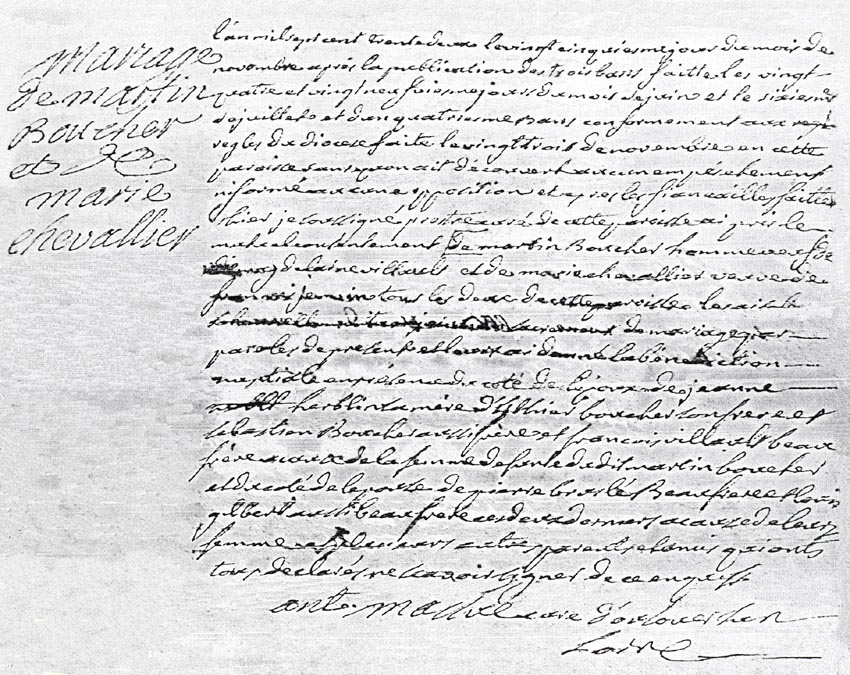 mariage
de martin
Boucher
et de
marie
chevallier
l'an mil sept cent trente deux le vingt cinquiesme jour du mois de
novembre apres la publication des trois bans faitte les vingt
quatre et vingt neufiesme jours du mois de juin et le sixiesme
de juillet et d'un quatriesme Bans conformement aux
regles du diocese faite le vingt trois de novembre en cette
paroisse sans qu'on ait decouvert aucun empeschement
ni formé aucune opposition et apres les fiancailles faitte
hier je soussigné prestre curé de cette paroisse ai pris le
mutuel consentement de martin Boucher homme veuf de
delaine villault et de marie chevallier veuve de
francois tous les deux de cette paroisse
de mariage par
paroles de present et leurs ai donné la benediction
nuptiale en présence du coté de l'epoux de jeanne
herblin sa mère d' boucher son frere et
sebastien Boucher aussi frère et francois villault beau
frère a cause de la femme defunte dudit martin boucher
et du coté de l'epouse de pierre Beaufrere et louis
gilbert aussi beau frere ces deux derniers a cause de leurs
femme et plusieurs autres parents et amis qui ont
tous declarés ne scavoir signer de ce enquis
ant. curé d'
Loire